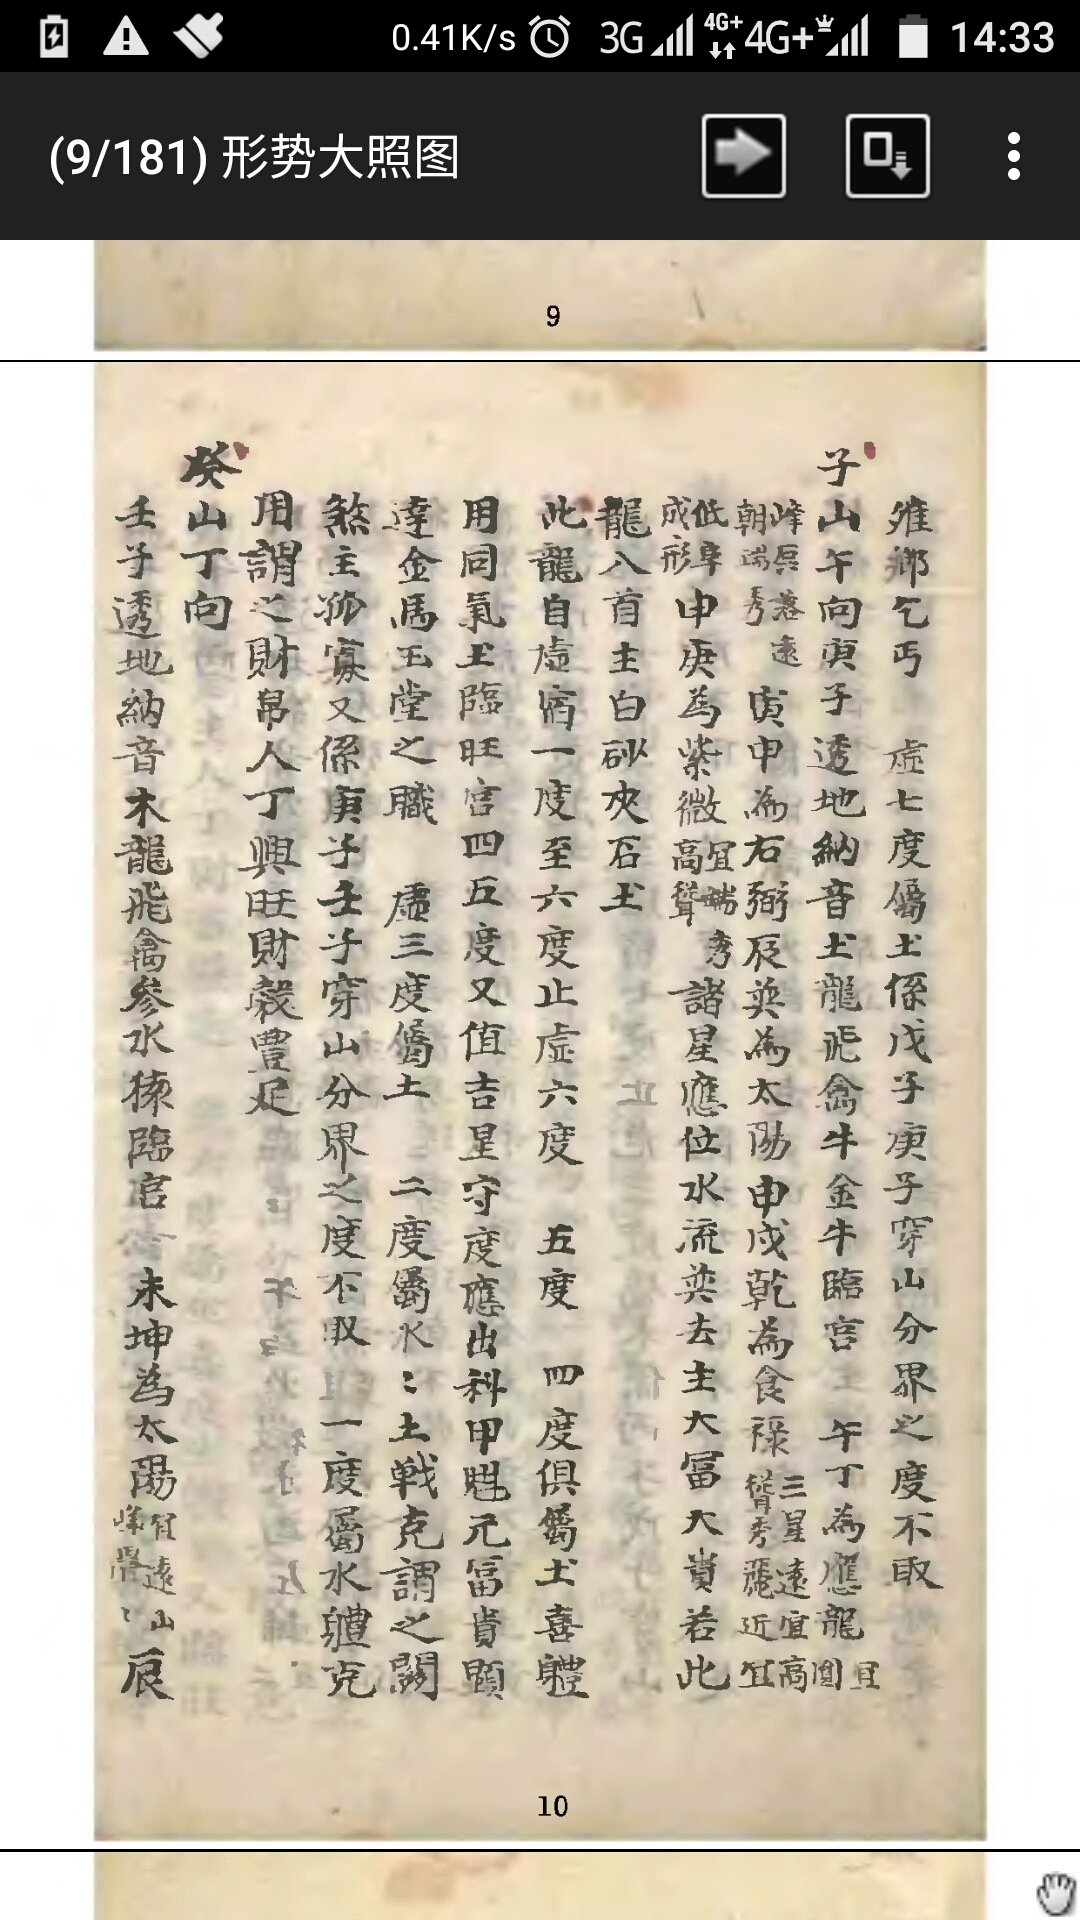 0.41K/s 3G 4G+ 4G+ 14:33
(9/181) 形势大照图
9
雖鄉乞丐 虛七度屬土係戊子庚子穿山分界之度不取
子山午向庚子透地納音土龍飛禽牛金牛臨官 午丁為應龍宜圓
峰宸落遠朝端秀 寅申為右弼辰巽為太陽申戌乾為食祿三星遠宜高聳秀麗近宜
低阜成形 申庚為紫微宜端秀高聳諸星應位水流巽去主大冨大貴若此
龍八首主白砂夾石土
此龍自虛宿一度至六度止虛六度 五度 四度俱屬土喜體
用同氣土臨旺宮四五度又值吉星守度應出科甲魁元冨貴顕
達金馬玉堂之職 虛三度屬土 二度屬水水土戰克謂之關
煞主孤寡又係庚子壬子穿山分界之度不取 一度屬水體克
用謂之財帛人丁興旺財穀豊足
癸山丁向
壬子透地納音木龍飛禽參水猿臨官 未坤為太陽宜遠山峰巒〻辰
10